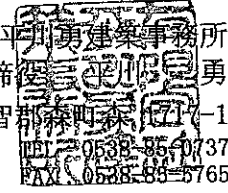 平川勇建築事務所
締役 平川 勇
智郡森町森 1717-1
TEL 0538-85-0737
FAX 0538-85-5765